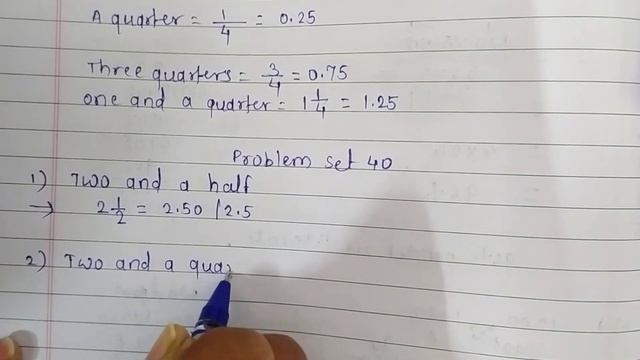 A quarter = 1/4 = 0.25
Three quarters = 3/4 = 0.75
one and a quarter = 1 1/4 = 1.25
Problem set 40
1) Two and a half
→ 2 1/2 = 2.50 / 2.5
2) Two and a qua